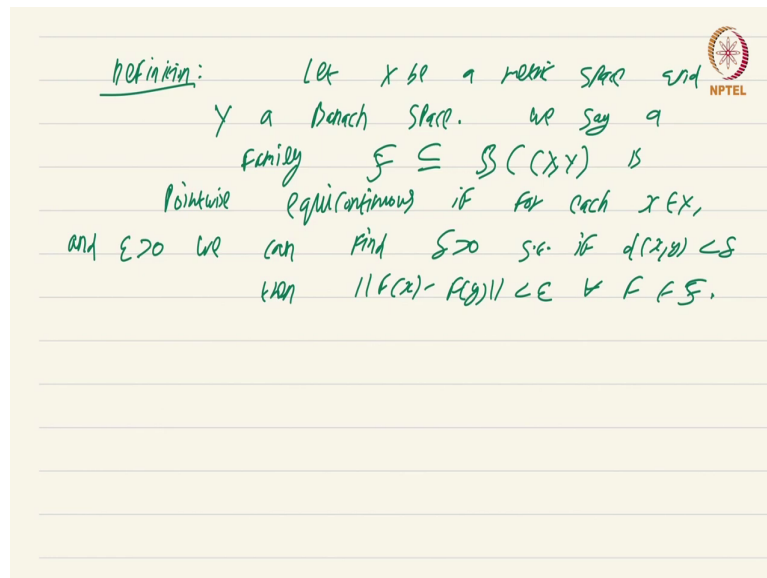 Definition: Let X be a metric space and
Y a Banach space. We say a
family F ⊆ BC(X,Y) is
pointwise equicontinuous if for each x ∈ X,
and ε>0 we can find δ>0 s.t. if d(x,y) < δ
then ||F(x) - F(y)|| < ε ∀ F ∈ F.
NPTEL